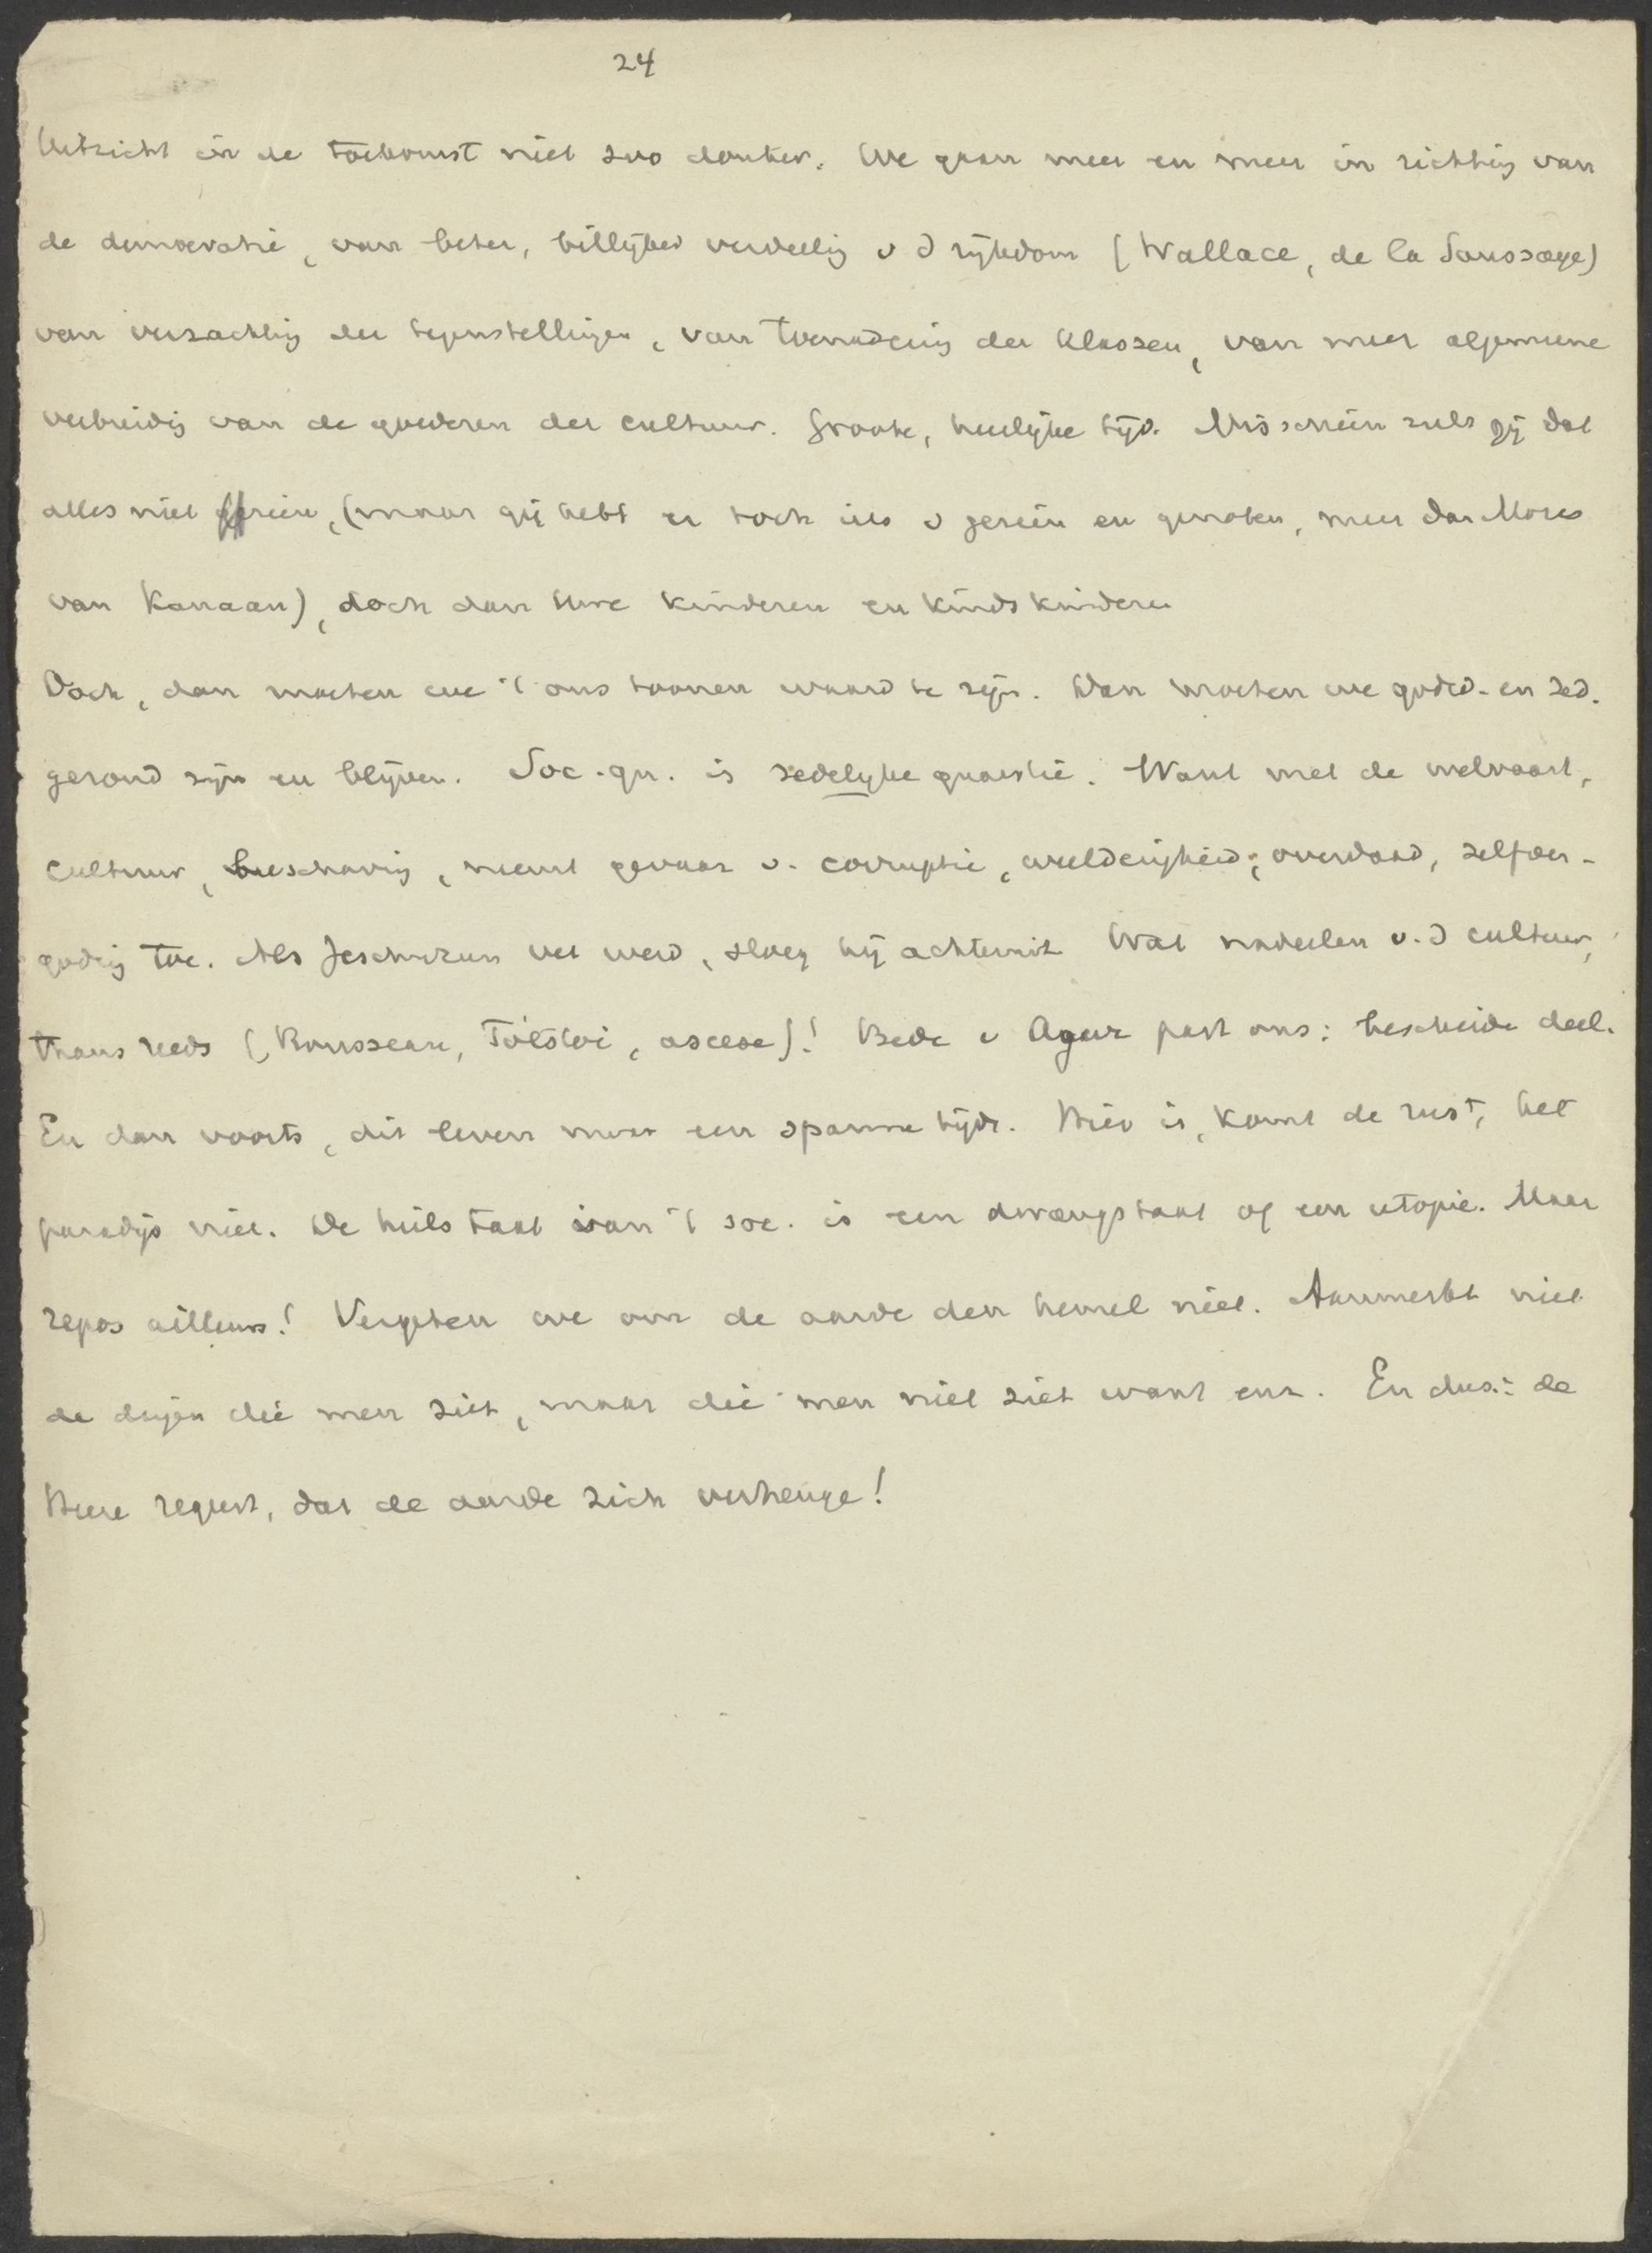 24
Uitzicht in de toekomst niet zoo donker. We gaan meer en meer in richting van
de democratie, van beter, billijker verdeeling v d rijkdom (Wallace, de la Saussaye)
van verzachting der tegenstellingen, van toenadering der klassen, van meer algemeene
verbreiding van de goederen der cultuur. Groote, heerlijke tijd. Misschien zult gij dat
alles niet zien, (maar gij hebt er toch iets v gezien en genoten, meer dan Mozes
van Kanaan), doch dan Uwe kinderen en kindskinderen
Doch, dan moeten we 't ons toonen waard te zijn. Dan moeten we godsd. en zed.
gezond zijn en blijven. Soc. qu. is zedelijke quaestie. Want met de welvaart,
cultuur, beschaving, neemt gevaar v. corruptie, weelderigheid, overdaad, zelfver-
goding toe. Als Jeschurun vet werd, sloeg hij achteruit. Wat nadeelen v. d cultuur,
thans reeds (Rousseau, Tolstoi, ascese)! Bede v Agur past ons: bescheide deel.
En dan voorts, dit leven maar een spanne tijds. Hier is, komt de rust, het
paradijs niet. De heilstaat van 't soc. is een dwangstaat of een utopie. Maar
repos ailleurs! Vergeten we om de aarde den hemel niet. Aanmerkt niet
de dingen die men ziet, maar die men niet ziet want enz. En dus: de
Heere regeert, dat de aarde zich verheuge!